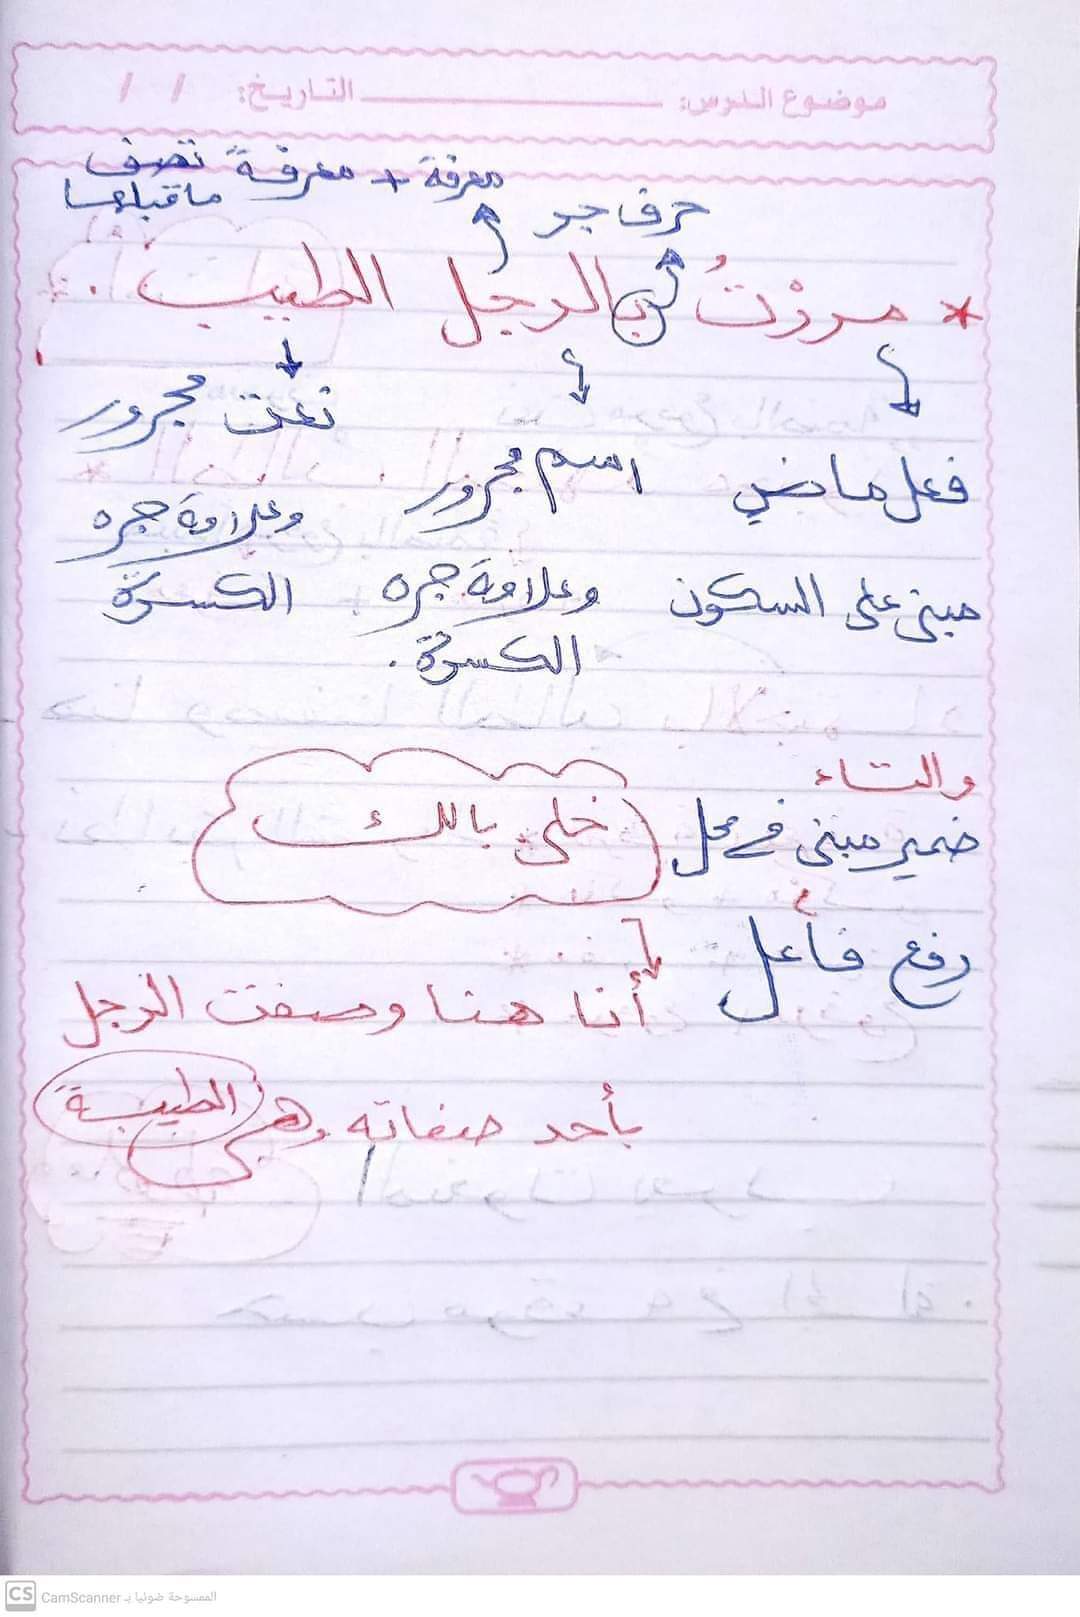 موضوع الدرس: ــــــــــــ التاريخ: / /
معرفة + معرفة تصف
ما قبلها
حرف جر
* مررْتُ بالرجل الطيب.
نعت مجرور
فعل ماضي اسم مجرور
وعلامة جره
مبنى على السكون وعلامة جره الكسرة
الكسرة.
والتاء
ضمير مبنى فى محل
خلى بالك
رفع فاعل
أنا هنا وصفت الرجل
بأحد صفاته وهى الطيبة
CS CamScanner الممسوحة ضوئيا بـ